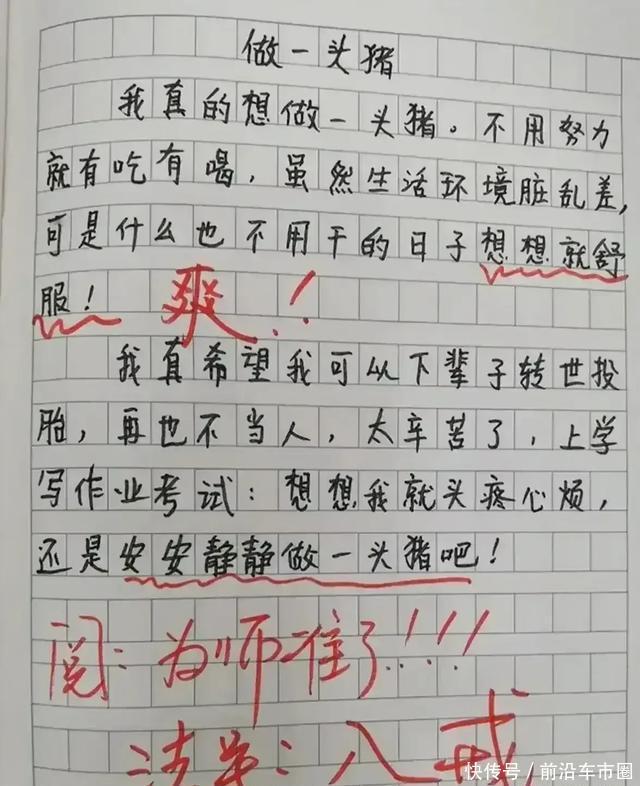 做一头猪
我真的想做一头猪。不用努力
就有吃有喝，虽然生活环境脏乱差，
可是什么也不用干的日子想想就舒
服！ 爽！
我真希望我可以下辈子转世投
胎，再也不当人，太辛苦了，上学
写作业考试：想想我就头疼心烦，
还是安安静静做一头猪吧！
阅：为师准了！！！
法号：八戒
快传号／前沿车市圈